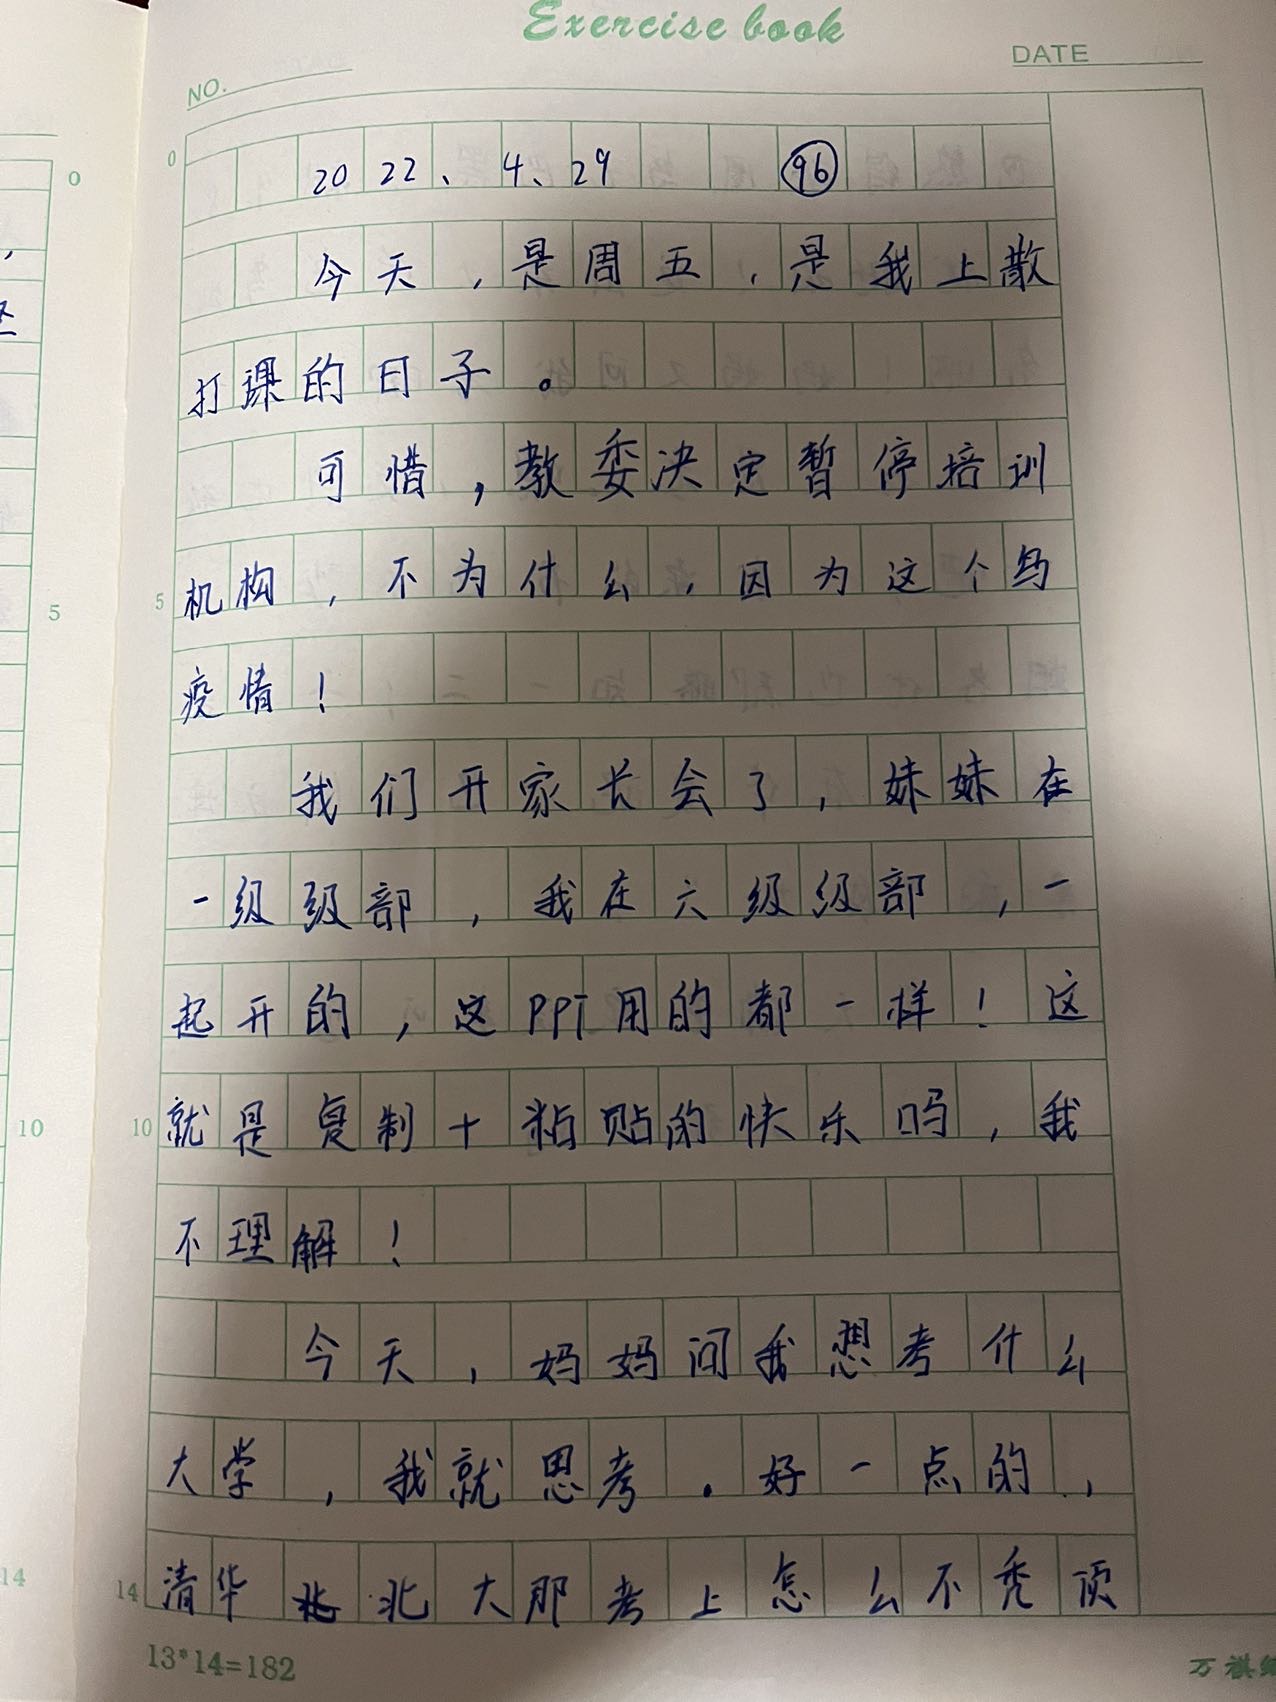 Exercise book
NO.
DATE
2022、4、29 96
今天，是周五，是我上散
打课的日子。
可惜，教委决定暂停培训
机构，不为什么，因为这个鸟
疫情！
我们开家长会了，妹妹在
一级级部，我在六级级部，一
起开的，这PPT用的都一样！这
就是复制+粘贴的快乐吗，我
不理解！
今天，妈妈问我想考什么
大学，我就思考。好一点的，
清华北大那考上怎么不秃顶
13*14=182
0
5
10
14
0
5
10
14